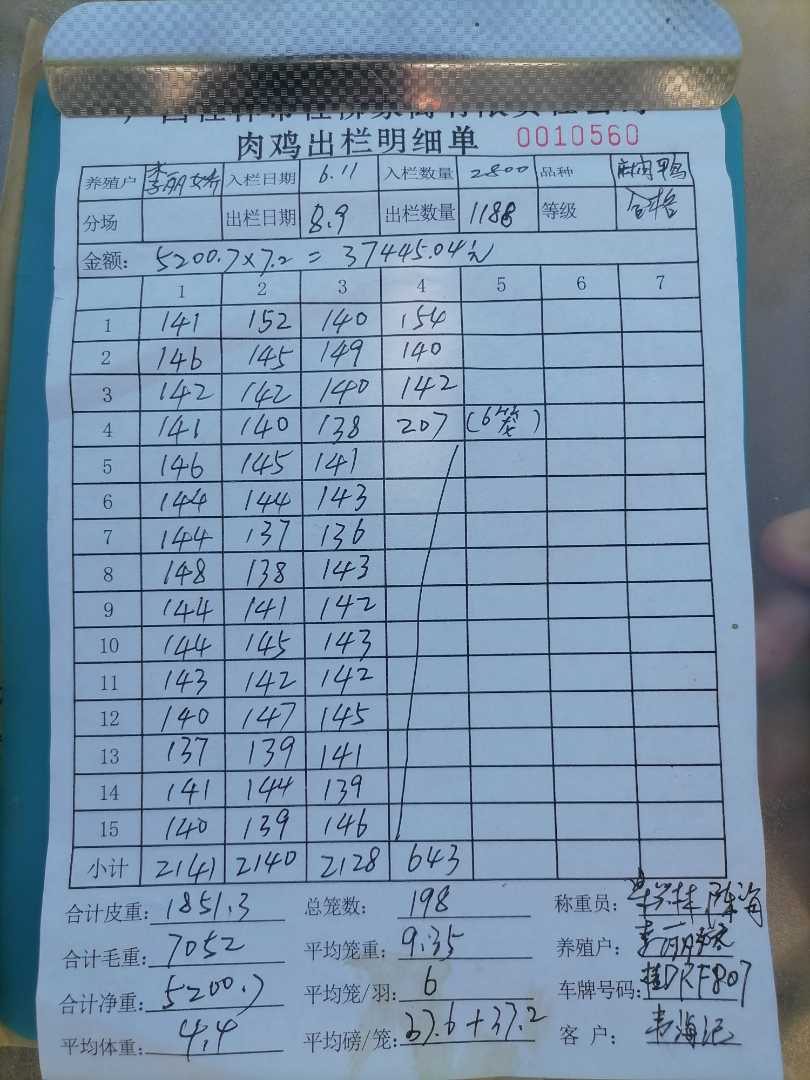 肉鸡出栏明细单 0010560
养殖户 李丽娇 入栏日期 6.11 入栏数量 2800 品种 麻肉鸭
分场 出栏日期 8.9 出栏数量 1188 等级 合格
金额: 5200.7×7.2=37445.04元
1 2 3 4 5 6 7
1 141 152 140 154
2 146 145 149 140
3 142 142 140 142
4 141 140 138 207 (6笼)
5 146 145 141
6 144 144 143
7 144 137 136
8 148 138 143
9 144 141 142
10 144 145 143
11 143 142 142
12 140 147 145
13 137 139 141
14 141 144 139
15 140 139 146
小计 2141 2140 2128 643
合计皮重: 1851.3 总笼数: 198 称重员:
合计毛重: 7052 平均笼重: 9.35 养殖户: 李丽娇
合计净重: 5200.7 平均笼/羽: 6 车牌号码: 桂DRF807
平均体重: 4.4 平均磅/笼: 37.6+37.2 客户: